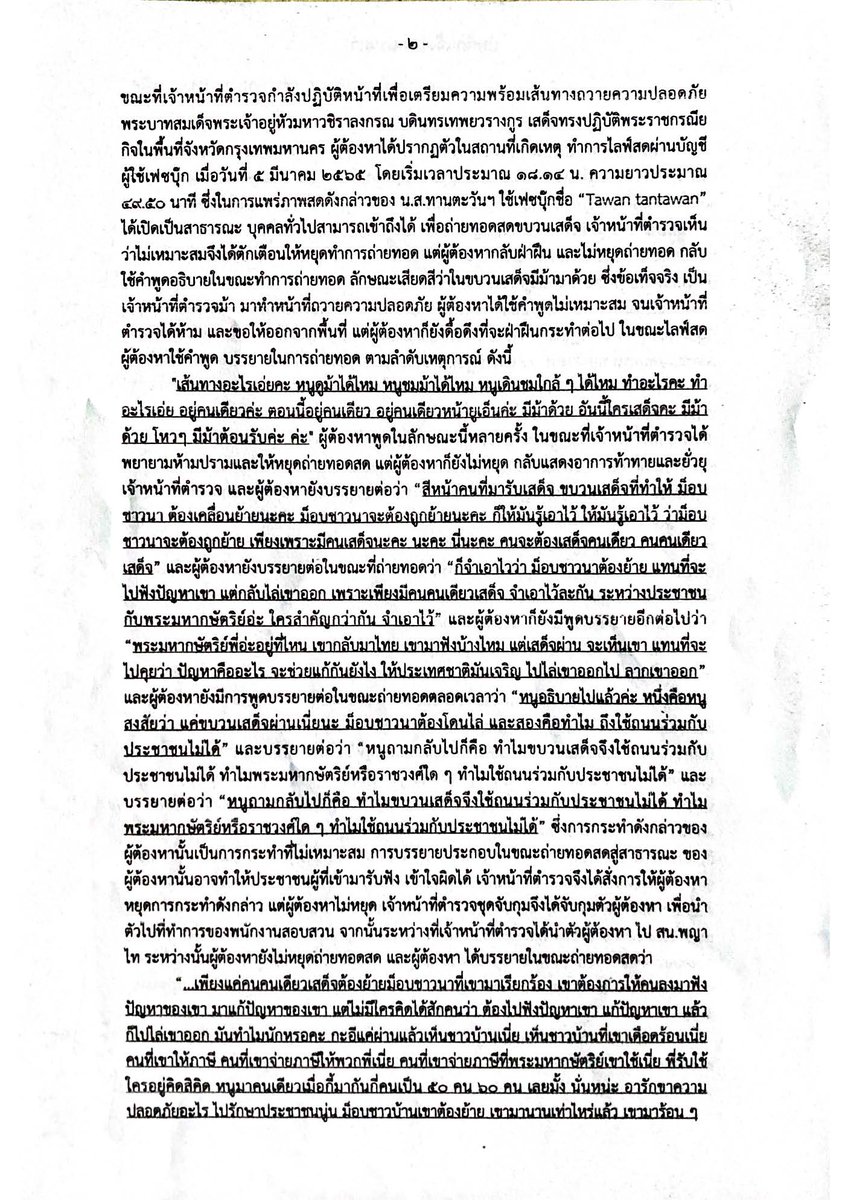 - ๒ -
ขณะที่เจ้าหน้าที่ตำรวจกำลังปฏิบัติหน้าที่เพื่อเตรียมความพร้อมเส้นทางถวายความปลอดภัย
พระบาทสมเด็จพระเจ้าอยู่หัวมหาวชิราลงกรณ บดินทรเทพยวรางกูร เสด็จทรงปฏิบัติพระราชกรณีย
กิจในพื้นที่จังหวัดกรุงเทพมหานคร ผู้ต้องหาได้ปรากฏตัวในสถานที่เกิดเหตุ ทำการไลฟ์สดผ่านบัญชี
ผู้ใช้เฟซบุ๊ก เมื่อวันที่ ๕ มีนาคม ๒๕๖๕ โดยเริ่มเวลาประมาณ ๑๘.๑๔ น. ความยาวประมาณ
๔๙.๕๐ นาที ซึ่งในการแพร่ภาพสดดังกล่าวของ น.ส.ทานตะวันฯ ใช้เฟซบุ๊กชื่อ "Tawan tantawan"
ได้เปิดเป็นสาธารณะ บุคคลทั่วไปสามารถเข้าถึงได้ เพื่อถ่ายทอดสดขบวนเสด็จ เจ้าหน้าที่ตำรวจเห็น
ว่าไม่เหมาะสมจึงได้ตักเตือนให้หยุดทำการถ่ายทอด แต่ผู้ต้องหากลับฝ่าฝืน และไม่หยุดถ่ายทอด กลับ
ใช้คำพูดอธิบายในขณะทำการถ่ายทอด ลักษณะเสียดสีว่าในขบวนเสด็จมีม้ามาด้วย ซึ่งข้อเท็จจริง เป็น
เจ้าหน้าที่ตำรวจม้า มาทำหน้าที่ถวายความปลอดภัย ผู้ต้องหาได้ใช้คำพูดไม่เหมาะสม จนเจ้าหน้าที่
ตำรวจได้ห้าม และขอให้ออกจากพื้นที่ แต่ผู้ต้องหาก็ยังดื้อดึงที่จะฝ่าฝืนกระทำต่อไป ในขณะไลฟ์สด
ผู้ต้องหาใช้คำพูด บรรยายในการถ่ายทอด ตามลำดับเหตุการณ์ ดังนี้
"เส้นทางอะไรเอ่ยคะ หนูดูม้าได้ไหม หนูชมม้าได้ไหม หนูเดินชมใกล้ ๆ ได้ไหม ทำอะไรคะ ทำ
อะไรเอ่ย อยู่คนเดียวค่ะ ตอนนี้อยู่คนเดียว อยู่คนเดียวหน้ายูเอ็นค่ะ มีม้าด้วย อันนี้ใครเสด็จคะ มีม้า
ด้วย โหวๆ มีม้าต้อนรับค่ะ ค่ะ" ผู้ต้องหาพูดในลักษณะนี้หลายครั้ง ในขณะที่เจ้าหน้าที่ตำรวจได้
พยายามห้ามปรามและให้หยุดถ่ายทอดสด แต่ผู้ต้องหาก็ยังไม่หยุด กลับแสดงอาการท้าทายและยั่วยุ
เจ้าหน้าที่ตำรวจ และผู้ต้องหายังบรรยายต่อว่า "สีหน้าคนที่มารับเสด็จ ขบวนเสด็จที่ทำให้ ม็อบ
ชาวนา ต้องเคลื่อนย้ายนะคะ ม็อบชาวนาจะต้องถูกย้ายนะคะ ก็ให้มันรู้เอาไว้ ให้มันรู้เอาไว้ ว่าม็อบ
ชาวนาจะต้องถูกย้าย เพียงเพราะมีคนเสด็จนะคะ นะคะ นี่นะคะ คนจะต้องเสด็จคนเดียว คนคนเดียว
เสด็จ" และผู้ต้องหายังบรรยายต่อในขณะที่ถ่ายทอดว่า "ก็จำเอาไวว่า ม็อบชาวนาต้องย้าย แทนที่จะ
ไปฟังปัญหาเขา แต่กลับไล่เขาออก เพราะเพียงมีคนคนเดียวเสด็จ จำเอาไว้ละกัน ระหว่างประชาชน
กับพระมหากษัตริย์อ่ะ ใครสำคัญกว่ากัน จำเอาไว้" และผู้ต้องหาก็ยังมีพูดบรรยายอีกต่อไปว่า
"พระมหากษัตริย์พี่อ่ะอยู่ที่ไหน เขากลับมาไทย เขามาฟังบ้างไหม แต่เสด็จผ่าน จะเห็นเขา แทนที่จะ
ไปคุยว่า ปัญหาคืออะไร จะช่วยแก้กันยังไง ให้ประเทศชาติมันเจริญ ไปไล่เขาออกไป ลากเขาออก"
และผู้ต้องหายังมีการพูดบรรยายต่อในขณะถ่ายทอดตลอดเวลาว่า "หนูอธิบายไปแล้วค่ะ หนึ่งคือหนู
สงสัยว่า แค่ขบวนเสด็จผ่านเนี่ยนะ ม็อบชาวนาต้องโดนไล่ และสองคือทำไม ถึงใช้ถนนร่วมกับ
ประชาชนไม่ได้" และบรรยายต่อว่า "หนูถามกลับไปก็คือ ทำไมขบวนเสด็จจึงใช้ถนนร่วมกับ
ประชาชนไม่ได้ ทำไมพระมหากษัตริย์หรือราชวงศ์ใด ๆ ทำไมใช้ถนนร่วมกับประชาชนไม่ได้" และ
บรรยายต่อว่า "หนูถามกลับไปก็คือ ทำไมขบวนเสด็จจึงใช้ถนนร่วมกับประชาชนไม่ได้ ทำไม
พระมหากษัตริย์หรือราชวงศ์ใด ๆ ทำไมใช้ถนนร่วมกับประชาชนไม่ได้" ซึ่งการกระทำดังกล่าวของ
ผู้ต้องหานั้นเป็นการกระทำที่ไม่เหมาะสม การบรรยายประกอบในขณะถ่ายทอดสดสู่สาธารณะ ของ
ผู้ต้องหานั้นอาจทำให้ประชาชนผู้ที่เข้ามารับฟัง เข้าใจผิดได้ เจ้าหน้าที่ตำรวจจึงได้สั่งการให้ผู้ต้องหา
หยุดการกระทำดังกล่าว แต่ผู้ต้องหาไม่หยุด เจ้าหน้าที่ตำรวจชุดจับกุมจึงได้จับกุมตัวผู้ต้องหา เพื่อนำ
ตัวไปที่ทำการของพนักงานสอบสวน จากนั้นระหว่างที่เจ้าหน้าที่ตำรวจได้นำตัวผู้ต้องหา ไป สน.พญา
ไท ระหว่างนั้นผู้ต้องหายังไม่หยุดถ่ายทอดสด และผู้ต้องหา ได้บรรยายในขณะถ่ายทอดสดว่า
"...เพียงแค่คนคนเดียวเสด็จต้องย้ายม็อบชาวนาที่เขามาเรียกร้อง เขาต้องการให้คนลงมาฟัง
ปัญหาของเขา มาแก้ปัญหาของเขา แต่ไม่มีใครคิดได้สักคนว่า ต้องไปฟังปัญหาเขา แก้ปัญหาเขา แล้ว
ก็ไปไล่เขาออก มันทำไมนักหรอคะ กะอีแค่ผ่านแล้วเห็นชาวบ้านเนี่ย เห็นชาวบ้านที่เขาเดือดร้อนเนี่ย
คนที่เขาให้ภาษี คนที่เขาจ่ายภาษีให้พวกพี่เนี่ย คนที่เขาจ่ายภาษีที่พระมหากษัตริย์เขาใช้เนี่ย พี่รับใช้
ใครอยู่คิดสิคิด หนูมาคนเดียวเมื่อกี้มากันกี่คนเป็น ๕๐ คน ๖๐ คน เลยมั้ง นั่นหน่ะ อารักขาความ
ปลอดภัยอะไร ไปรักษาประชาชนนู่น ม็อบชาวบ้านเขาต้องย้าย เขามานานเท่าไหร่แล้ว เขามาร้อน ๆ